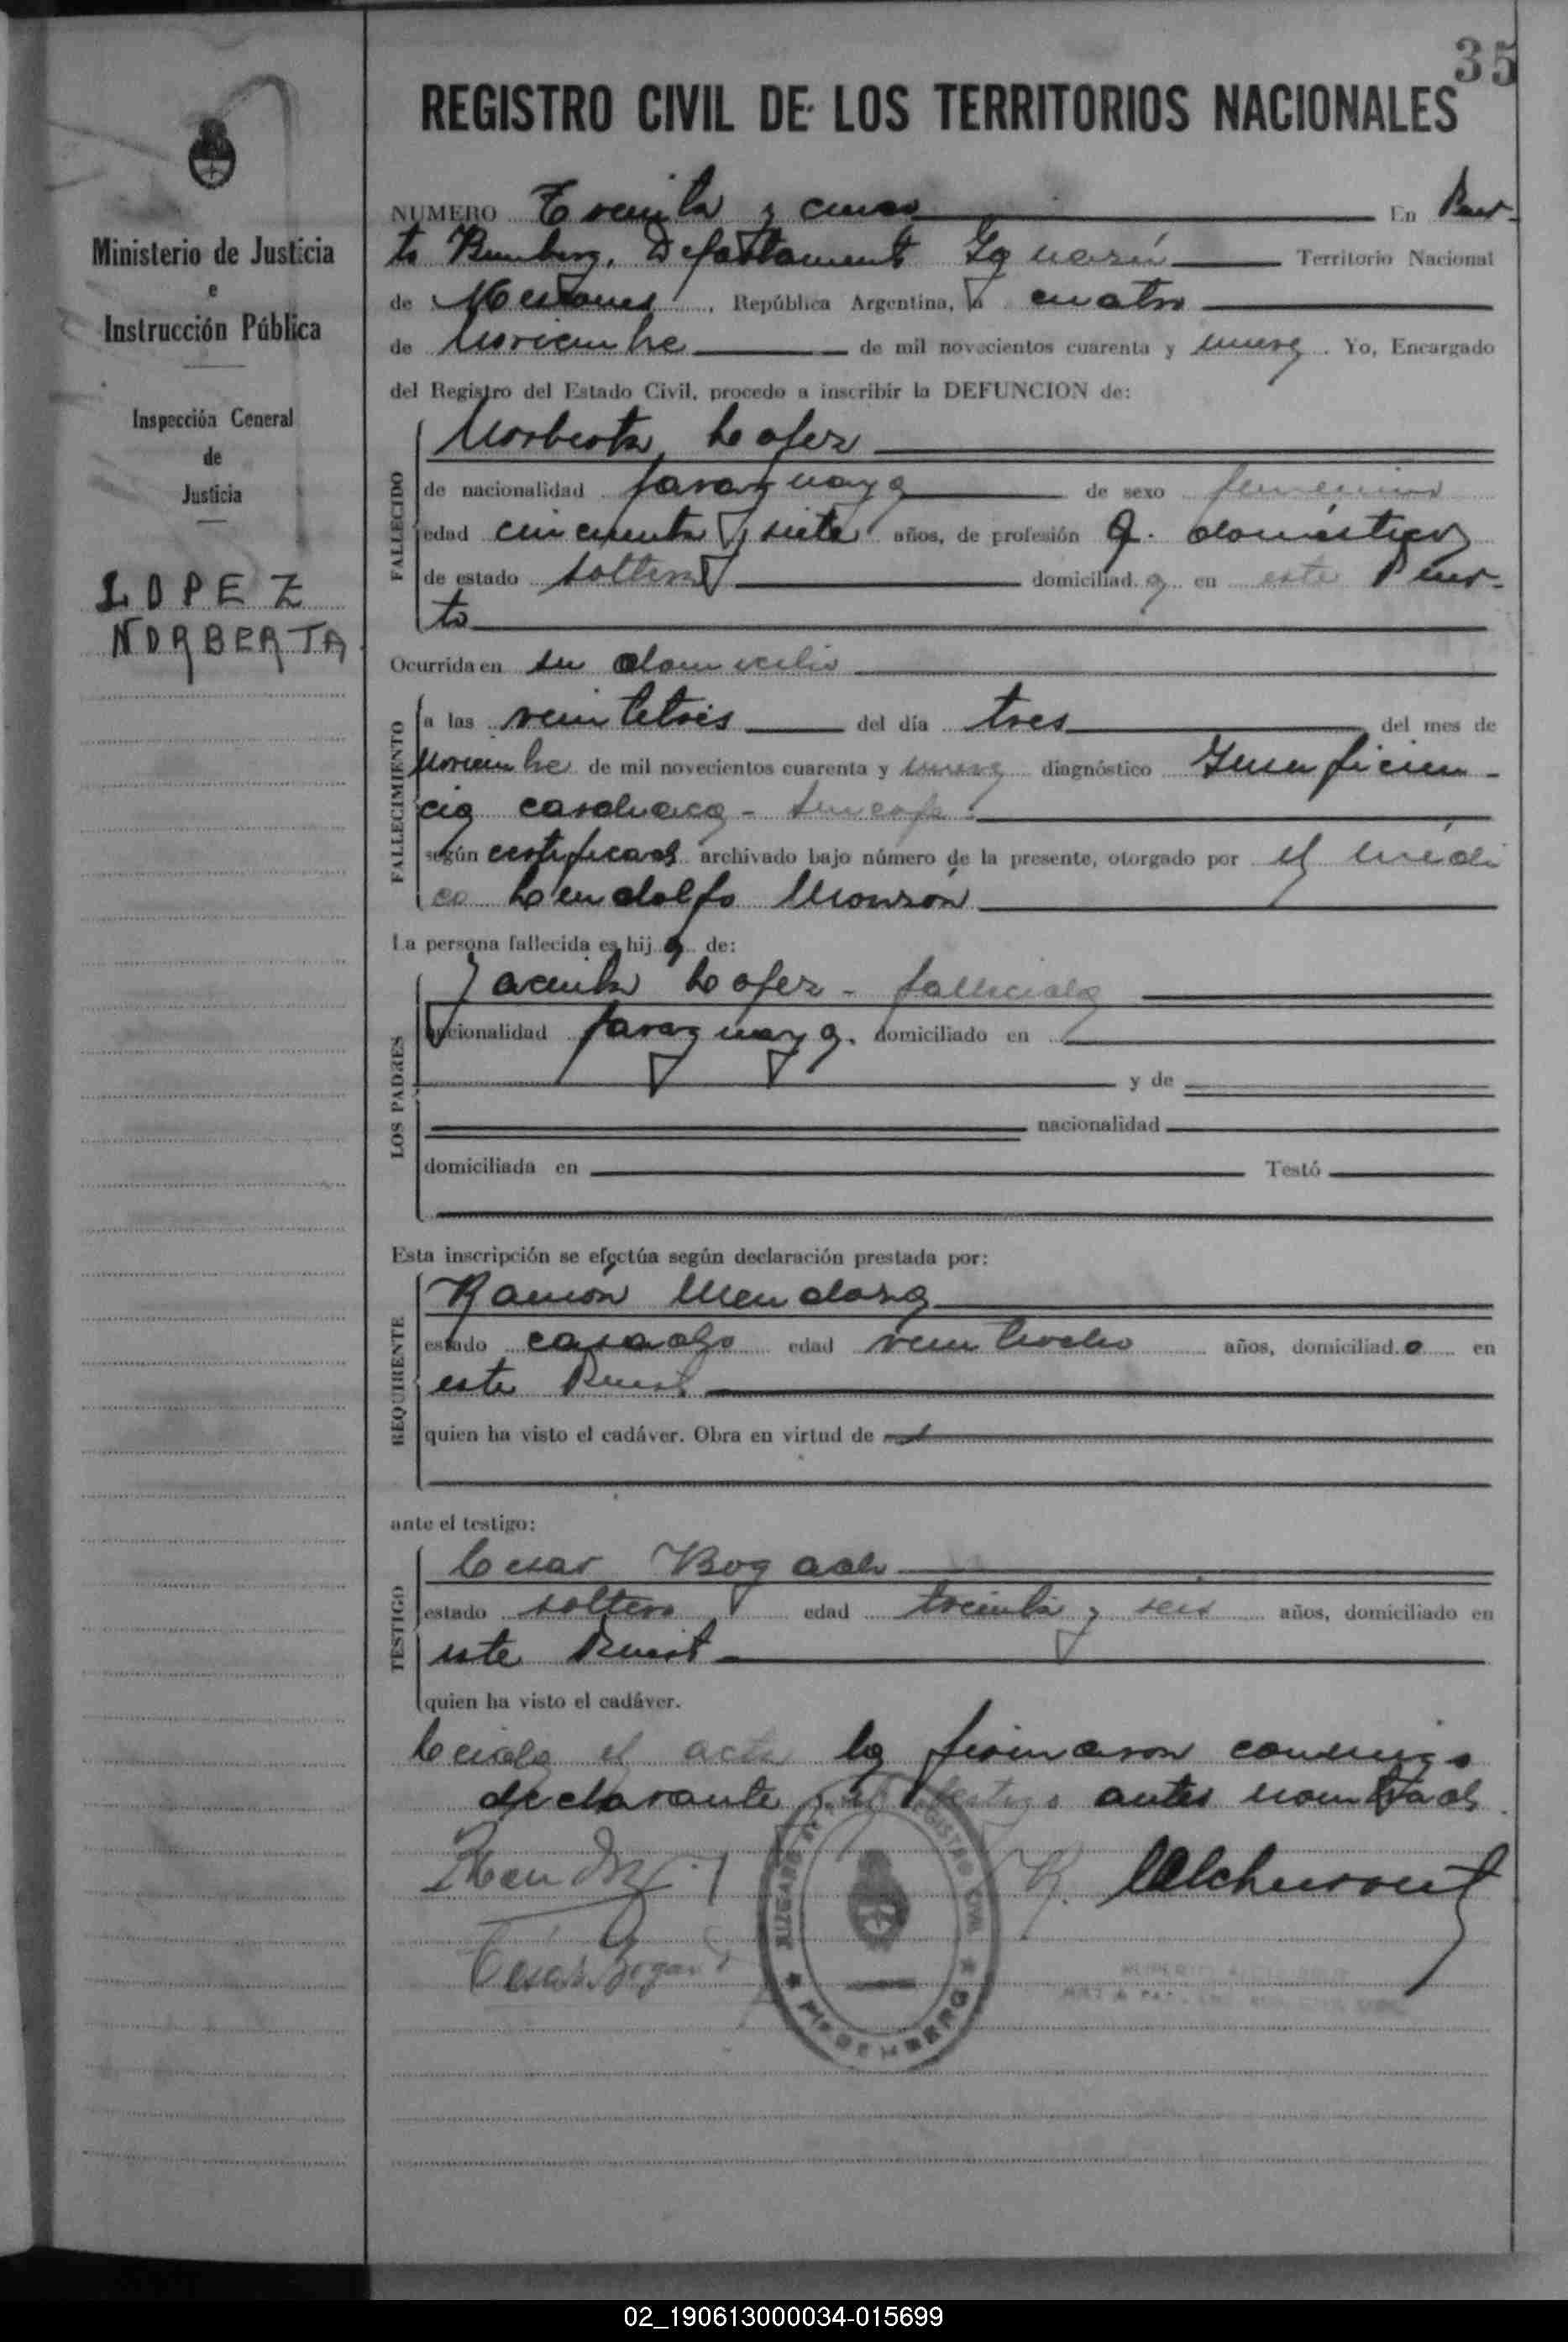 35
REGISTRO CIVIL DE LOS TERRITORIOS NACIONALES
Ministerio de Justicia
e
Instrucción Pública
Inspección General
de
Justicia
LOPEZ
NORBERTA
NUMERO Treinta y cinco En Puer-
to Bemberg, Departamento Iguazú Territorio Nacional
de Misiones, República Argentina, a cuatro
de Noviembre de mil novecientos cuarenta y nueve. Yo, Encargado
del Registro del Estado Civil, procedo a inscribir la DEFUNCION de:
FALLECIDO
Norberta Lopez
de nacionalidad paraguaya de sexo femenino
edad cincuenta y siete años, de profesión Q. domésticos
de estado soltera domiciliada en este Puer-
to
Ocurrida en su domicilio
FALLECIMIENTO
a las veintitrés del día tres del mes de
Noviembre de mil novecientos cuarenta y nueve diagnóstico Insuficien-
cia cardiaca - sincope
según certificado archivado bajo número de la presente, otorgado por el médi
co Lendolfo Monzón
La persona fallecida es hija de:
LOS PADRES
Jacinta Lopez - fallecida
nacionalidad paraguaya. domiciliado en
y de
nacionalidad
domiciliada en Testó
Esta inscripción se efectúa según declaración prestada por:
REQUIRENTE
Ramón Mendoza
estado casado edad veintiocho años, domiciliado en
este Puerto
quien ha visto el cadáver. Obra en virtud de
ante el testigo:
TESTIGO
Cesar Bogado
estado soltero edad treinta y seis años, domiciliado en
este Puerto
quien ha visto el cadáver.
Leida el acta la firmaron conmigo
declarante y el testigo antes nombrado
JUZGADO DE REGISTRO CIVIL
Cesar Bogado
02_190613000034-015699